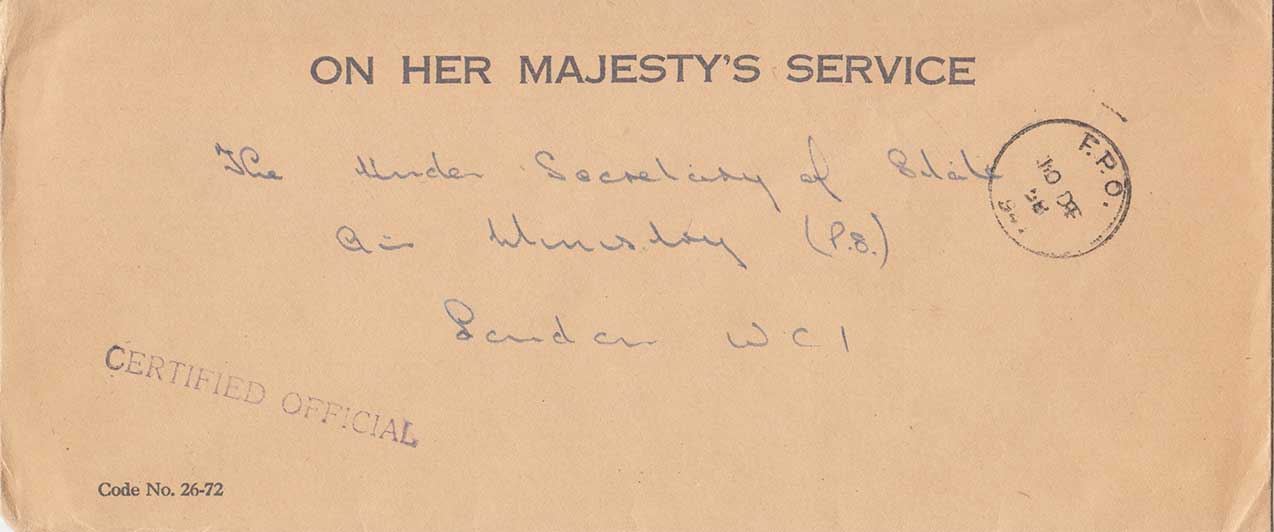 ON HER MAJESTY'S SERVICE
The Under Secretary of State
Air Ministry (P.8.)
London WC1
F.P.O.
DE
CERTIFIED OFFICIAL
Code No. 26-72